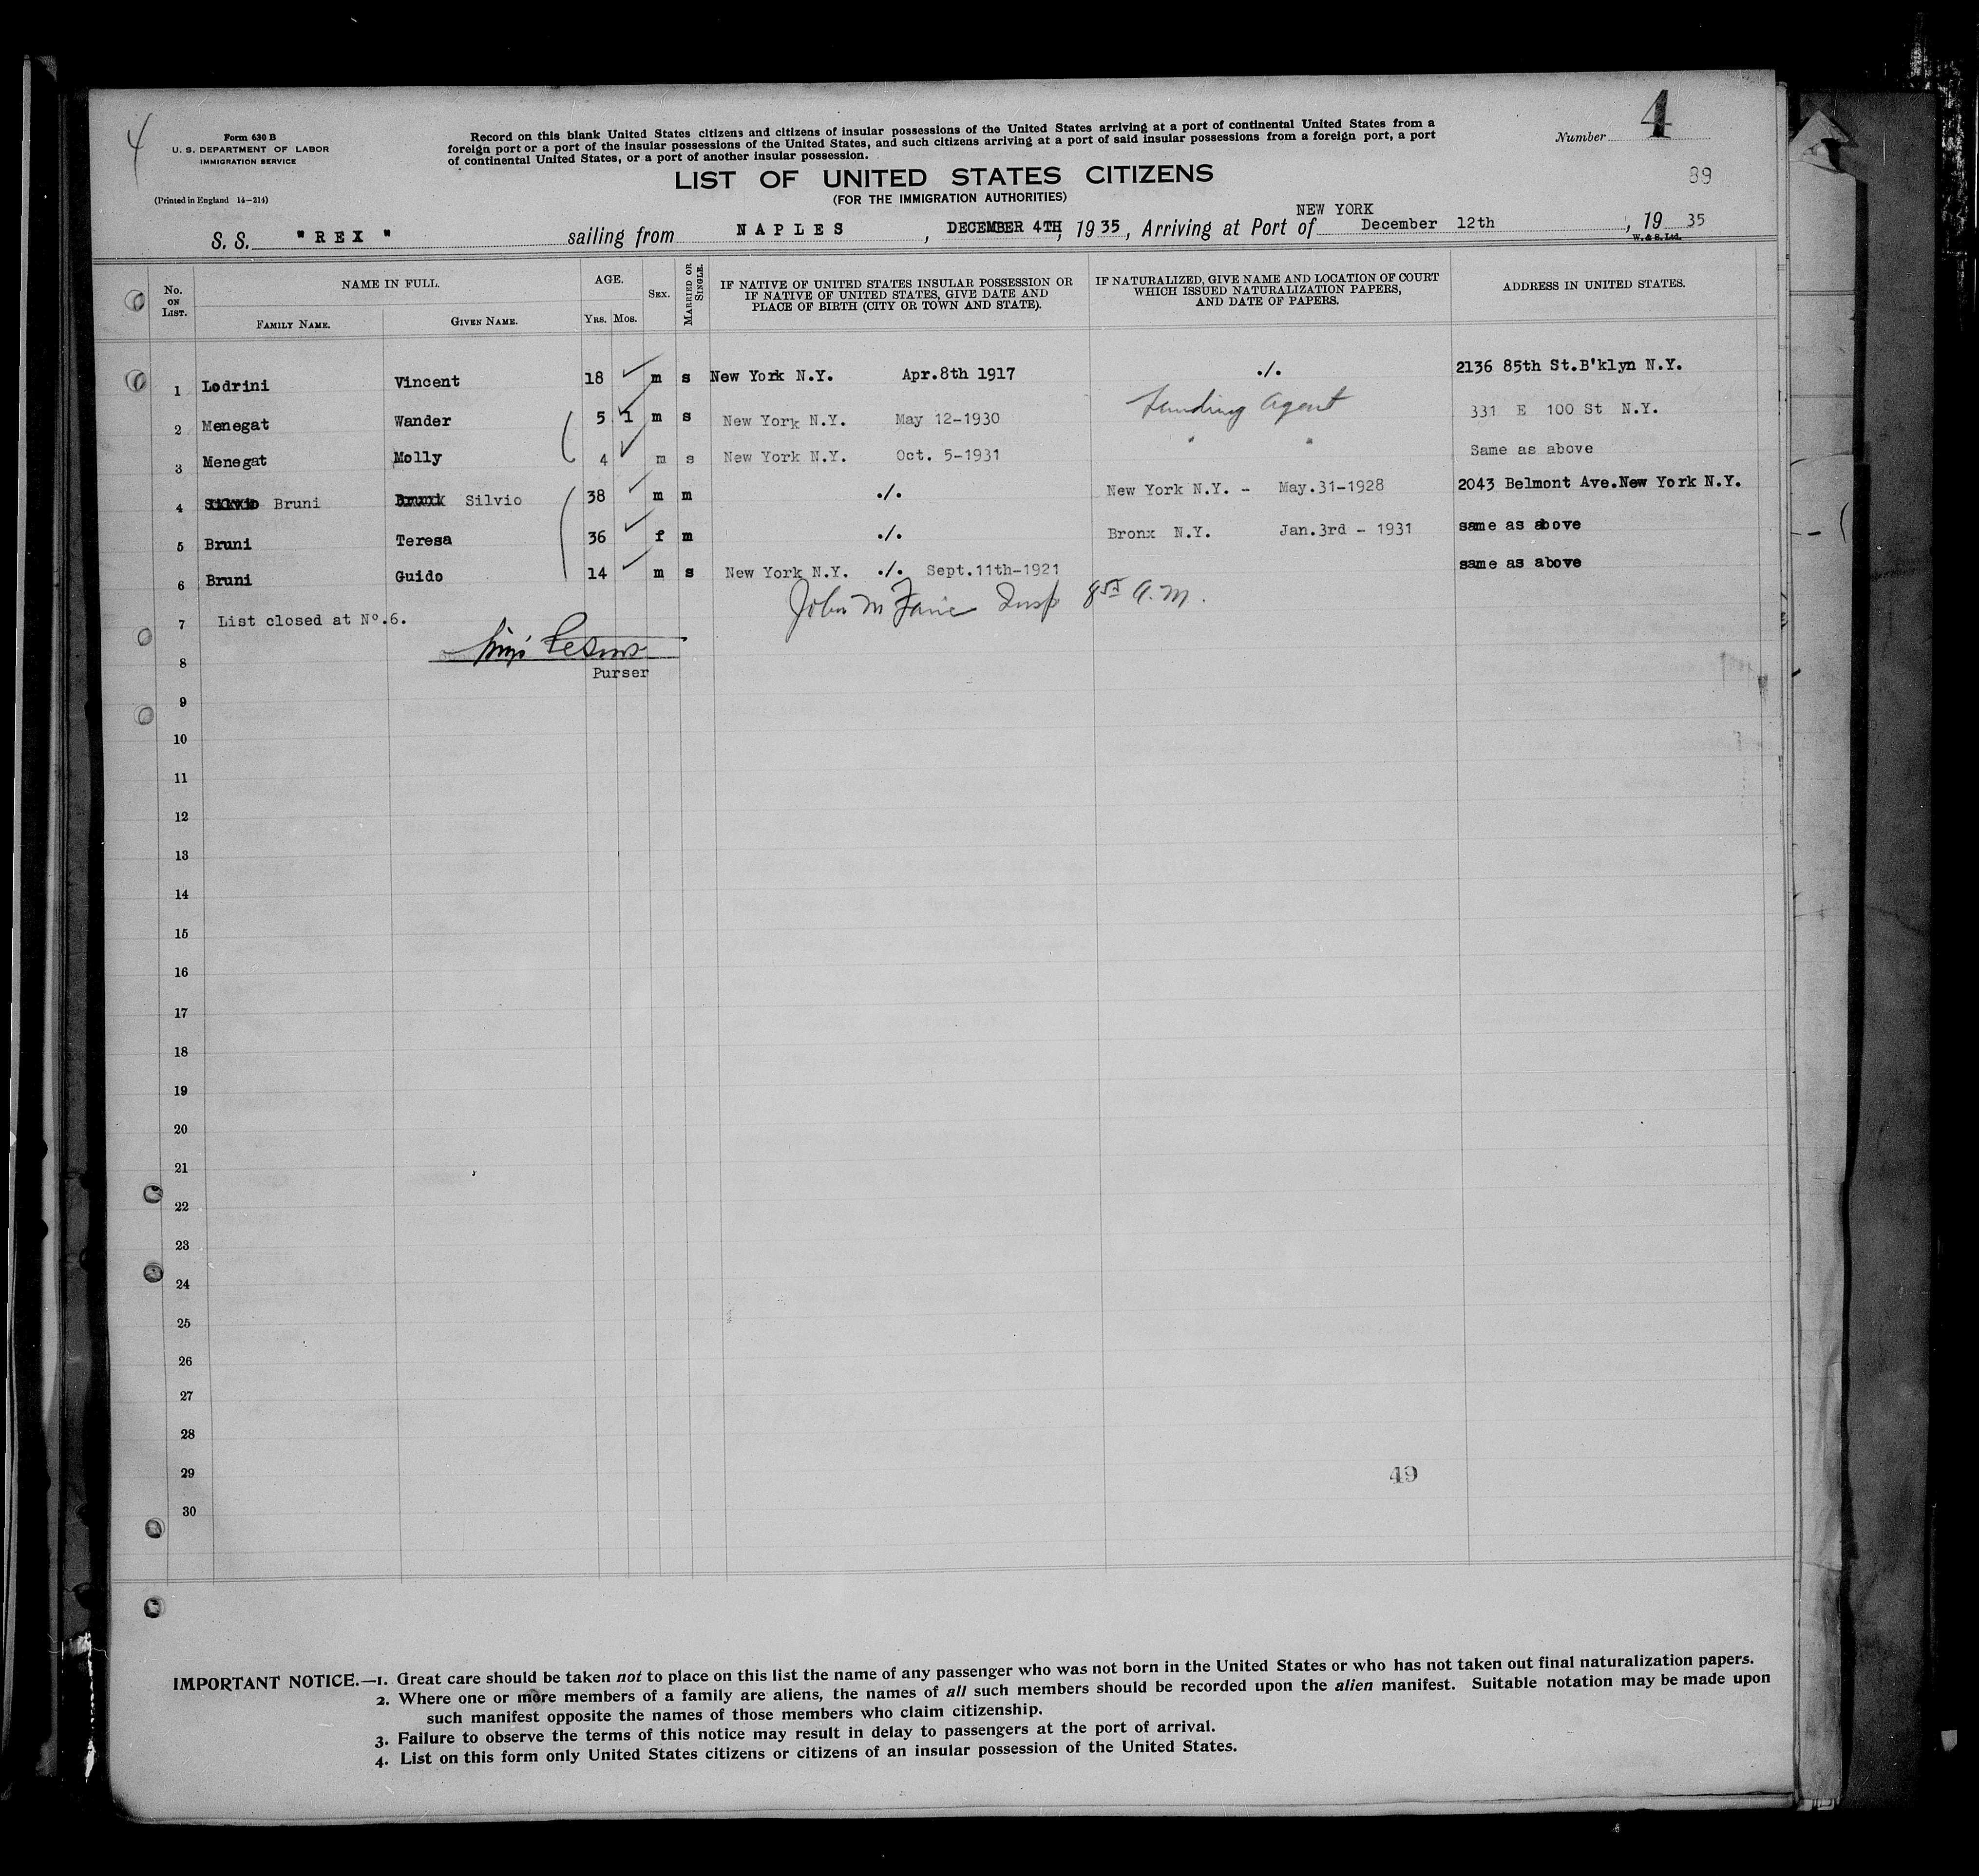 4
Form 630 B
U. S. DEPARTMENT OF LABOR
IMMIGRATION SERVICE
(Printed in England 14—214)
Record on this blank United States citizens and citizens of insular possessions of the United States arriving at a port of continental United States from a
foreign port or a port of the insular possessions of the United States, and such citizens arriving at a port of said insular possessions from a foreign port, a port
of continental United States, or a port of another insular possession.
Number 4
89
LIST OF UNITED STATES CITIZENS
(FOR THE IMMIGRATION AUTHORITIES)
NEW YORK
S. S. "REX" sailing from NAPLES, DECEMBER 4TH, 1935, Arriving at Port of December 12th, 19 35
W. & S. Ltd.
No. ON LIST. NAME IN FULL. AGE. SEX. MARRIED OR SINGLE. IF NATIVE OF UNITED STATES INSULAR POSSESSION OR IF NATIVE OF UNITED STATES, GIVE DATE AND PLACE OF BIRTH (CITY OR TOWN AND STATE). IF NATURALIZED, GIVE NAME AND LOCATION OF COURT WHICH ISSUED NATURALIZATION PAPERS, AND DATE OF PAPERS. ADDRESS IN UNITED STATES.
FAMILY NAME. GIVEN NAME. YRS. MOS.
1 Lodrini Vincent 18 m s New York N.Y. Apr.8th 1917 ./. 2136 85th St.B'klyn N.Y.
2 Menegat Wander 5 1 m s New York N.Y. May 12-1930 Landing Agent 331 E 100 St N.Y.
3 Menegat Molly 4 m s New York N.Y. Oct. 5-1931 " " Same as above
4 Silvio Bruni Bruni Silvio 38 m m ./. New York N.Y. - May.31-1928 2043 Belmont Ave.New York N.Y.
5 Bruni Teresa 36 f m ./. Bronx N.Y. Jan.3rd - 1931 same as above
6 Bruni Guido 14 m s New York N.Y. ./. Sept.11th-1921 same as above
John M Insp 8 A.M.
7 List closed at No.6.
8
Purser
9
10
11
12
13
14
15
16
17
18
19
20
21
22
23
24
25
26
27
28
29
49
30
IMPORTANT NOTICE.—1. Great care should be taken not to place on this list the name of any passenger who was not born in the United States or who has not taken out final naturalization papers.
2. Where one or more members of a family are aliens, the names of all such members should be recorded upon the alien manifest. Suitable notation may be made upon
such manifest opposite the names of those members who claim citizenship.
3. Failure to observe the terms of this notice may result in delay to passengers at the port of arrival.
4. List on this form only United States citizens or citizens of an insular possession of the United States.